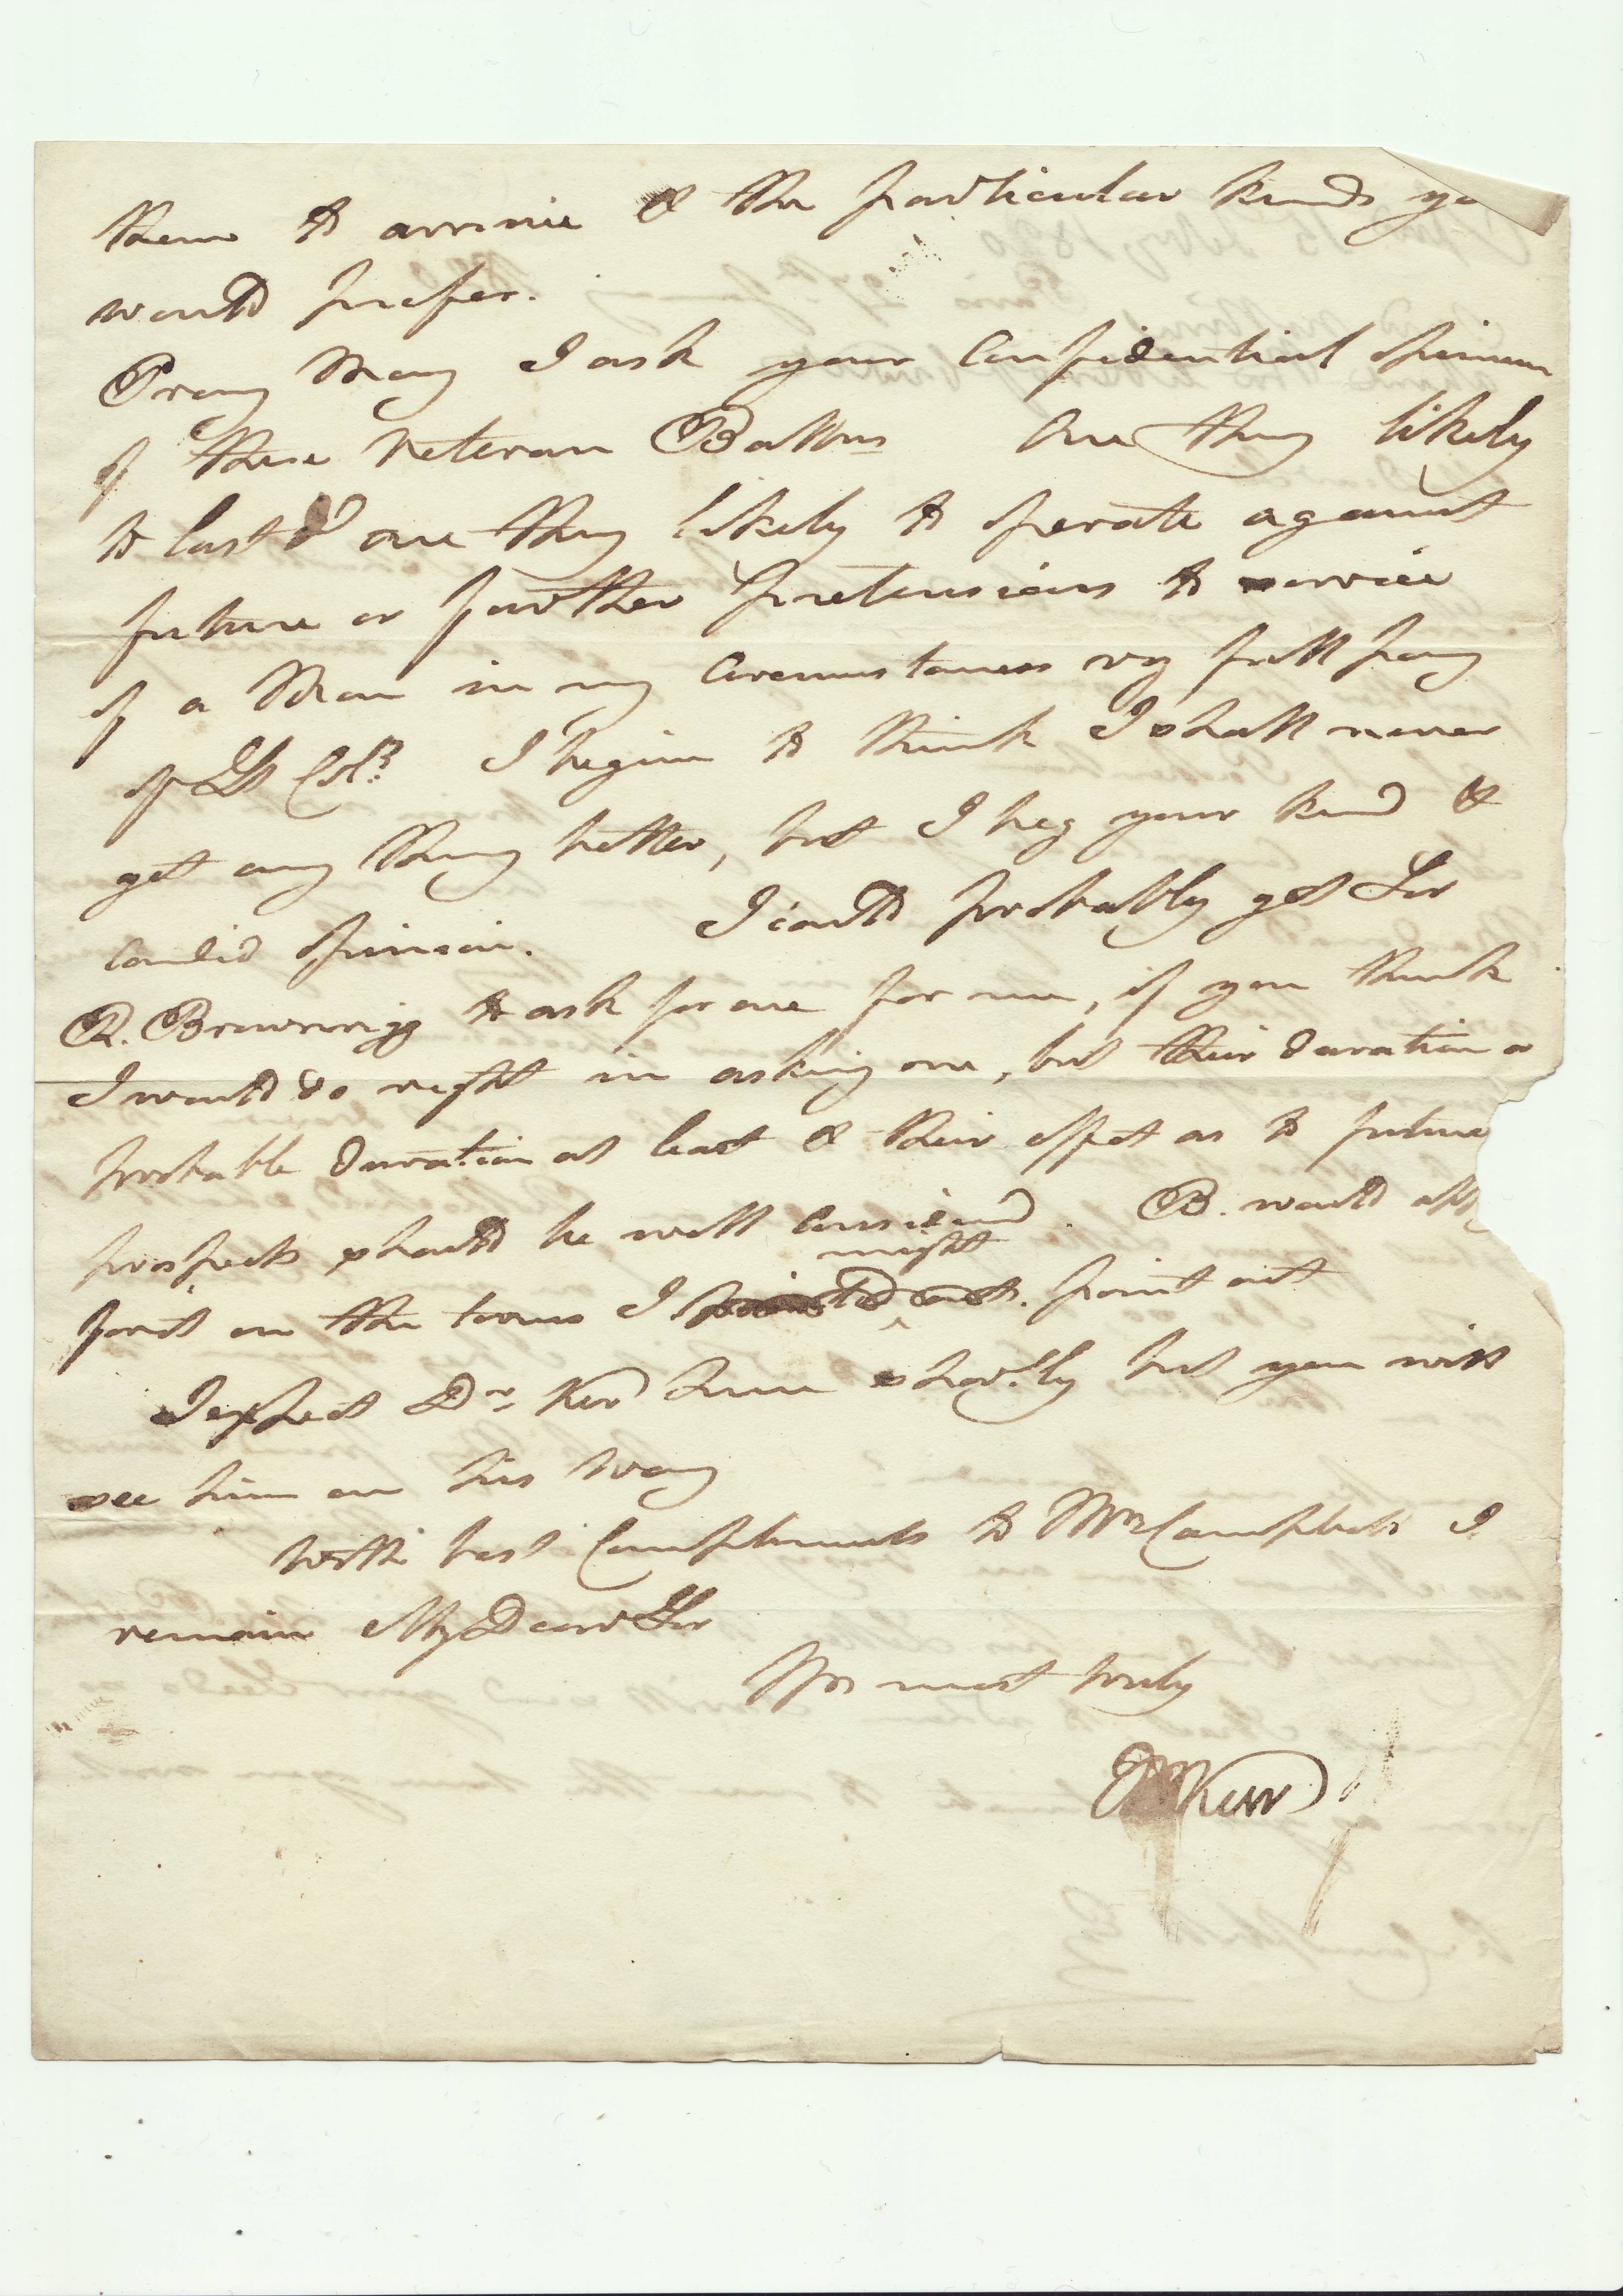 them to arrive & the particular kinds yo
would prefer.
Pray May I ask your Confidential Opinion
of these Veteran Battns Are they likely
to last & are they likely to operate against
future or further pretensions to service
of a Man in my Circumstances vz full pay
of Lt Col: I begin to think I shall never
get any thing better, but I beg your kind &
Candid Opinion. I could probably get Sir
R. Brownrigg to ask for one for me, if you think
I would do right in asking one, but their duration or
probable duration at least & their effect as to future
prospects should be well Considered. B. would
on the terms I pointed out. might point out
I expect Dr Ker here shortly but you will
see him on his way
With best Compliments to Mrs Campbell I
remain My Dear Sir
Yrs most truly
Kerr